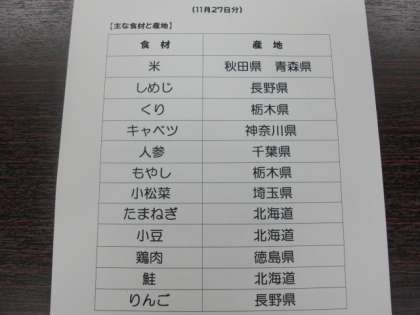 (11月27日分)
【主な食材と産地】
食 材 産 地
米 秋田県 青森県
しめじ 長野県
くり 栃木県
キャベツ 神奈川県
人参 千葉県
もやし 栃木県
小松菜 埼玉県
たまねぎ 北海道
小豆 北海道
鶏肉 徳島県
鮭 北海道
りんご 長野県